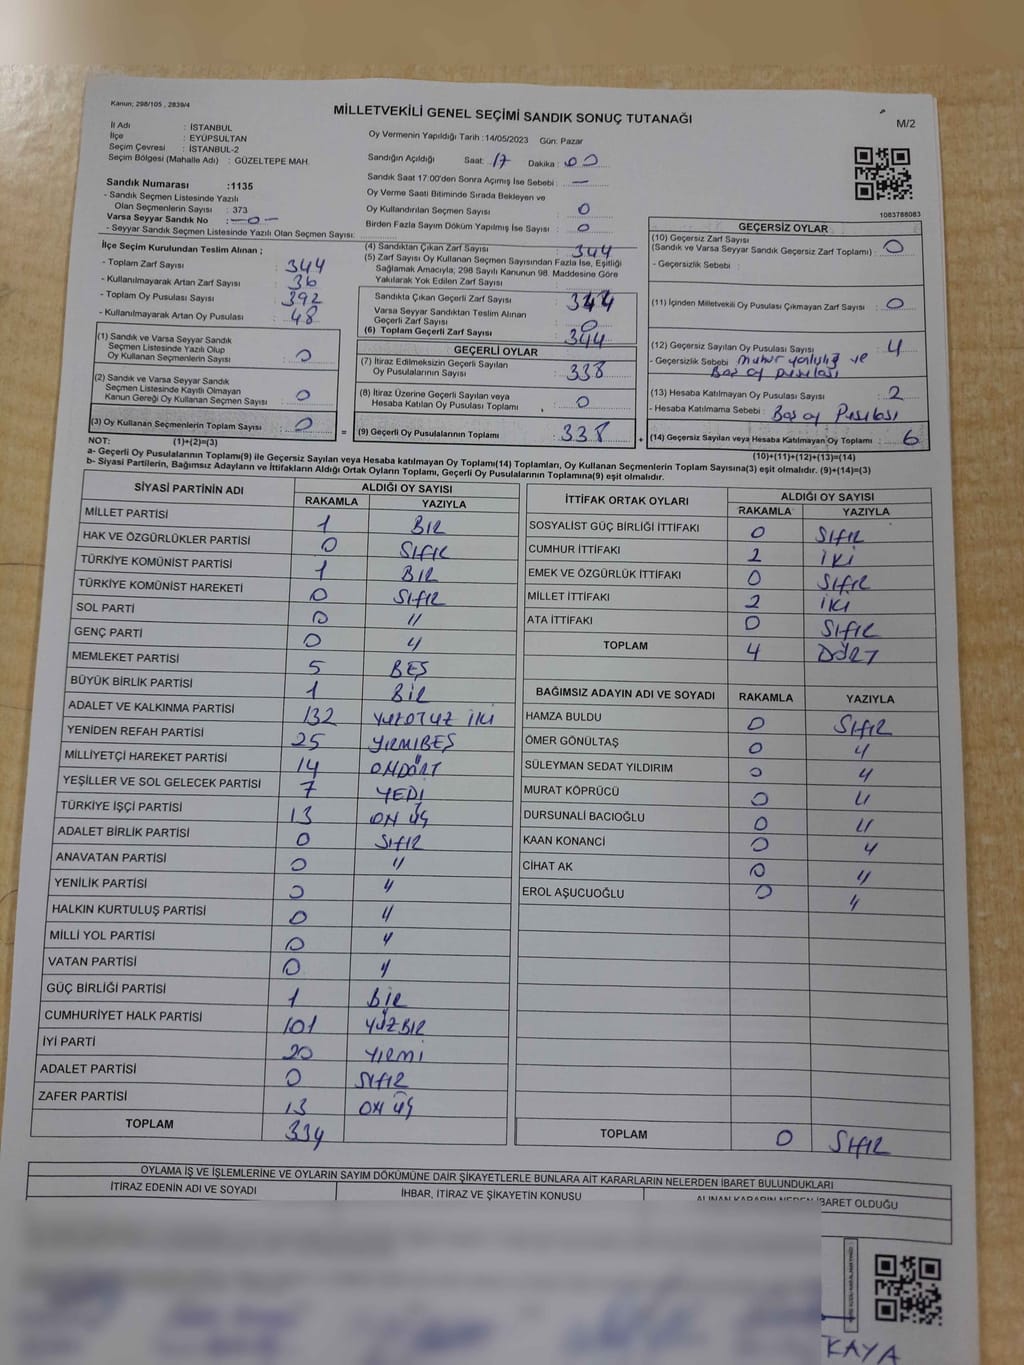 Kanun; 298/105 , 2839/4
MİLLETVEKİLİ GENEL SEÇİMİ SANDIK SONUÇ TUTANAĞI
M/2
İl Adı : İSTANBUL
İlçe : EYÜPSULTAN
Seçim Çevresi : İSTANBUL-2
Seçim Bölgesi (Mahalle Adı) : GÜZELTEPE MAH.
Sandık Numarası :1135
- Sandık Seçmen Listesinde Yazılı
Olan Seçmenlerin Sayısı : 373
Varsa Seyyar Sandık No : -0-
- Seyyar Sandık Seçmen Listesinde Yazılı Olan Seçmen Sayısı:
Oy Vermenin Yapıldığı Tarih :14/05/2023 Gün: Pazar
Sandığın Açıldığı Saat: 17 Dakika : 00
Sandık Saat 17:00'den Sonra Açımış İse Sebebi : —
Oy Verme Saati Bitiminde Sırada Bekleyen ve
Oy Kullandırılan Seçmen Sayısı : 0
Birden Fazla Sayım Döküm Yapılmış İse Sayısı : 0
1083788083
İlçe Seçim Kurulundan Teslim Alınan ;
- Toplam Zarf Sayısı : 344
- Kullanılmayarak Artan Zarf Sayısı : 36
- Toplam Oy Pusulası Sayısı : 392
- Kullanılmayarak Artan Oy Pusulası : 48
(1) Sandık ve Varsa Seyyar Sandık
Seçmen Listesinde Yazılı Olup
Oy Kullanan Seçmenlerin Sayısı : 0
(2) Sandık ve Varsa Seyyar Sandık
Seçmen Listesinde Kayıtlı Olmayan
Kanun Gereği Oy Kullanan Seçmen Sayısı : 0
(3) Oy Kullanan Seçmenlerin Toplam Sayısı : 0
(4) Sandıktan Çıkan Zarf Sayısı : 344
(5) Zarf Sayısı Oy Kullanan Seçmen Sayısından Fazla İse, Eşitliği
Sağlamak Amacıyla; 298 Sayılı Kanunun 98. Maddesine Göre
Yakılarak Yok Edilen Zarf Sayısı :
Sandıkta Çıkan Geçerli Zarf Sayısı : 344
Varsa Seyyar Sandıktan Teslim Alınan
Geçerli Zarf Sayısı : 0
(6) Toplam Geçerli Zarf Sayısı : 344
GEÇERLİ OYLAR
(7) İtiraz Edilmeksizin Geçerli Sayılan
Oy Pusulalarının Sayısı : 338
(8) İtiraz Üzerine Geçerli Sayılan veya
Hesaba Katılan Oy Pusulası Toplamı : 0
= (9) Geçerli Oy Pusulalarının Toplamı : 338 +
GEÇERSİZ OYLAR
(10) Geçersiz Zarf Sayısı
(Sandık ve Varsa Seyyar Sandık Geçersiz Zarf Toplamı) : 0
- Geçersizlik Sebebi :
(11) İçinden Milletvekili Oy Pusulası Çıkmayan Zarf Sayısı : 0
(12) Geçersiz Sayılan Oy Pusulası Sayısı : 4
- Geçersizlik Sebebi : Mühür yanlışlığı ve
Boş oy pusulası
(13) Hesaba Katılmayan Oy Pusulası Sayısı : 2
- Hesaba Katılmama Sebebi : Boş oy Pusulası
(14) Geçersiz Sayılan veya Hesaba Katılmayan Oy Toplamı : 6
NOT: (1)+(2)=(3)
(10)+(11)+(12)+(13)=(14)
a- Geçerli Oy Pusulalarının Toplamı(9) ile Geçersiz Sayılan veya Hesaba katılmayan Oy Toplamı(14) Toplamları, Oy Kullanan Seçmenlerin Toplam Sayısına(3) eşit olmalıdır. (9)+(14)=(3)
b- Siyasi Partilerin, Bağımsız Adayların ve İttifakların Aldığı Ortak Oyların Toplamı, Geçerli Oy Pusulalarının Toplamına(9) eşit olmalıdır.
SİYASİ PARTİNİN ADI ALDIĞI OY SAYISI
RAKAMLA YAZIYLA
MİLLET PARTİSİ 1 BİR
HAK VE ÖZGÜRLÜKLER PARTİSİ 0 SIFIR
TÜRKİYE KOMÜNİST PARTİSİ 1 BİR
TÜRKİYE KOMÜNİST HAREKETİ 0 SIFIR
SOL PARTİ 0 "
GENÇ PARTİ 0 "
MEMLEKET PARTİSİ 5 BEŞ
BÜYÜK BİRLİK PARTİSİ 1 BİR
ADALET VE KALKINMA PARTİSİ 132 YÜZOTUZ İKİ
YENİDEN REFAH PARTİSİ 25 YİRMİBEŞ
MİLLİYETÇİ HAREKET PARTİSİ 14 ONDÖRT
YEŞİLLER VE SOL GELECEK PARTİSİ 7 YEDİ
TÜRKİYE İŞÇİ PARTİSİ 13 ON ÜÇ
ADALET BİRLİK PARTİSİ 0 SIFIR
ANAVATAN PARTİSİ 0 "
YENİLİK PARTİSİ 0 "
HALKIN KURTULUŞ PARTİSİ 0 "
MİLLİ YOL PARTİSİ 0 "
VATAN PARTİSİ 0 "
GÜÇ BİRLİĞİ PARTİSİ 1 BİR
CUMHURİYET HALK PARTİSİ 101 YÜZBİR
İYİ PARTİ 20 YİRMİ
ADALET PARTİSİ 0 SIFIR
ZAFER PARTİSİ 13 ON ÜÇ
TOPLAM 334
İTTİFAK ORTAK OYLARI ALDIĞI OY SAYISI
RAKAMLA YAZIYLA
SOSYALİST GÜÇ BİRLİĞİ İTTİFAKI 0 SIFIR
CUMHUR İTTİFAKI 2 İKİ
EMEK VE ÖZGÜRLÜK İTTİFAKI 0 SIFIR
MİLLET İTTİFAKI 2 İKİ
ATA İTTİFAKI 0 SIFIR
TOPLAM 4 DÖRT
BAĞIMSIZ ADAYIN ADI VE SOYADI RAKAMLA YAZIYLA
HAMZA BULDU 0 SIFIR
ÖMER GÖNÜLTAŞ 0 "
SÜLEYMAN SEDAT YILDIRIM 0 "
MURAT KÖPRÜCÜ 0 "
DURSUNALİ BACIOĞLU 0 "
KAAN KONANCİ 0 "
CİHAT AK 0 "
EROL AŞUCUOĞLU 0 "
TOPLAM 0 SIFIR
OYLAMA İŞ VE İŞLEMLERİNE VE OYLARIN SAYIM DÖKÜMÜNE DAİR ŞİKAYETLERLE BUNLARA AİT KARARLARIN NELERDEN İBARET BULUNDUKLARI
İTİRAZ EDENİN ADI VE SOYADI İHBAR, İTİRAZ VE ŞİKAYETİN KONUSU ALINAN KARARIN NEDEN İBARET OLDUĞU
KAYA